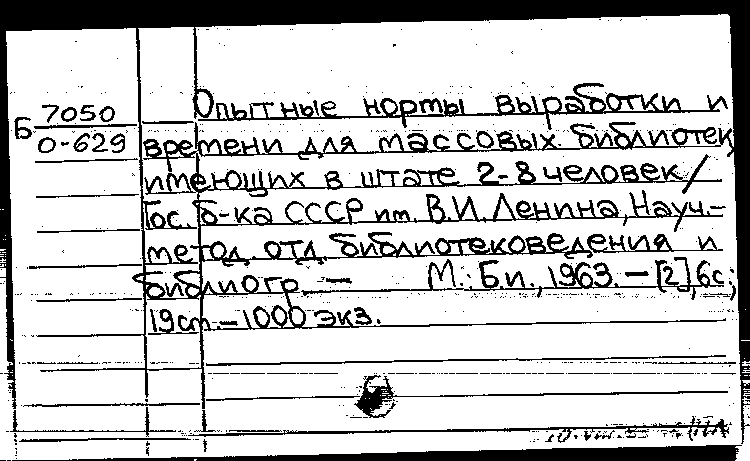 Б 7050
О-629
Опытные нормы выработки и
времени для массовых библиотек,
имеющих в штате 2-8 человек/
Гос. б-ка СССР им. В.И. Ленина, Науч.-
метод. отд. библиотековедения и
библиогр. — М.: Б.и., 1963. — [2], 6с.;
19cm. — 1000 экз.